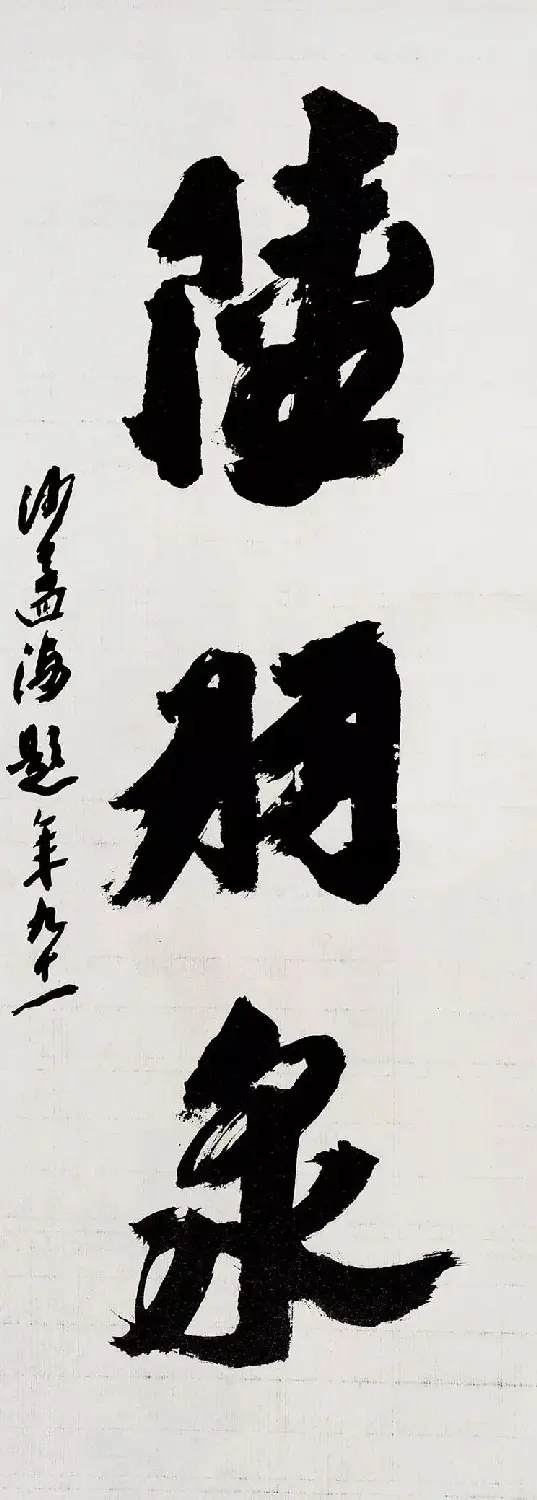 陸羽泉
沙孟海題年九十一